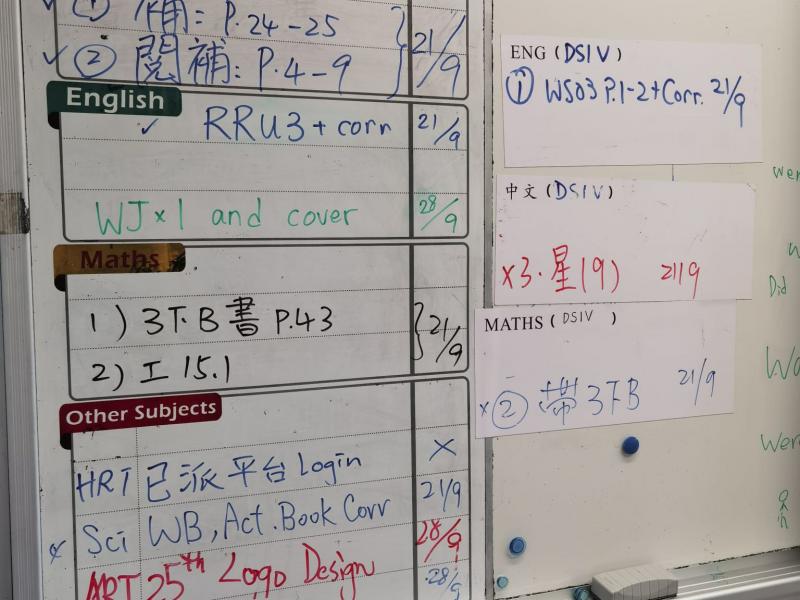 ① 補: P.24-25
✓ ② 閱補: P.4-9 } 21/9
English
✓ RRU3 + corr 21/9
WJ×1 and cover 28/9
Maths
1) 3下B書 P.43
2) 工 15.1 } 21/9
Other Subjects
HRT 已派平台 Login ×
Sci WB, Act. Book Corr 21/9
28/9
ART 25th Logo Design 28/9
ENG (DSIV)
① WS03 P.1-2 + Corr. 21/9
中文 (DSIV)
×3.星(9) 21/9
MATHS (DSIV)
×② 帶3下B 21/9
Did